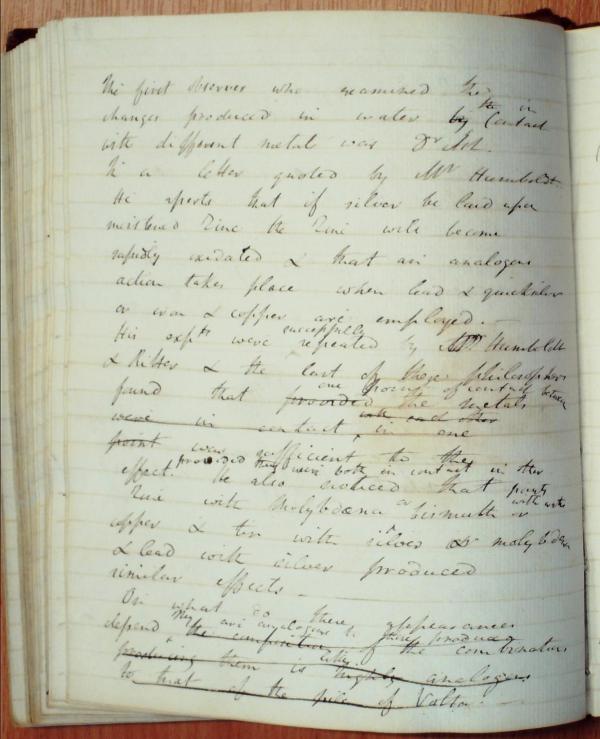 The first observer who examined the
changes produced in water by the in Contact
with different metals was Dr Ash.
In a letter quoted by Mr Humboldt
He asserts that if silver be laid upon
moistened Zinc the Zinc will become
rapidly oxidated & that an analogous
action takes place when lead & quicksilver
or iron & copper are employed. -
His expts were successfully repeated by Mr Humboldt
& Ritter & the last of these philosophers
found that provided one point of contact between the metals
were in contact with each other in one
point was sufficient to the
effect. provided they were both in contact in other parts with water
He also noticed that
Zinc with Molybdena or bismuth or
copper & tin with silver or molybdena
& lead with silver produced
similar effects. -
On what do these appearances
depend They are analogous to those produced
the composition of the combinations
producing them is highly analogous
to that of the pile of Volta. -